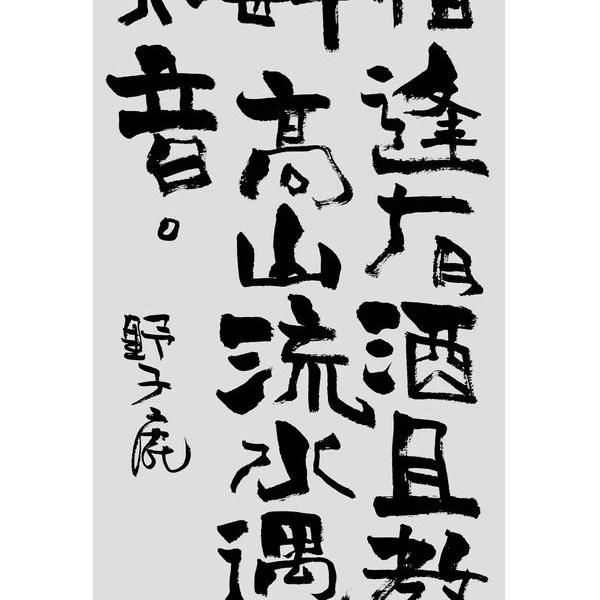 相逢有酒且教
高山流水遇
音。
野子鹿